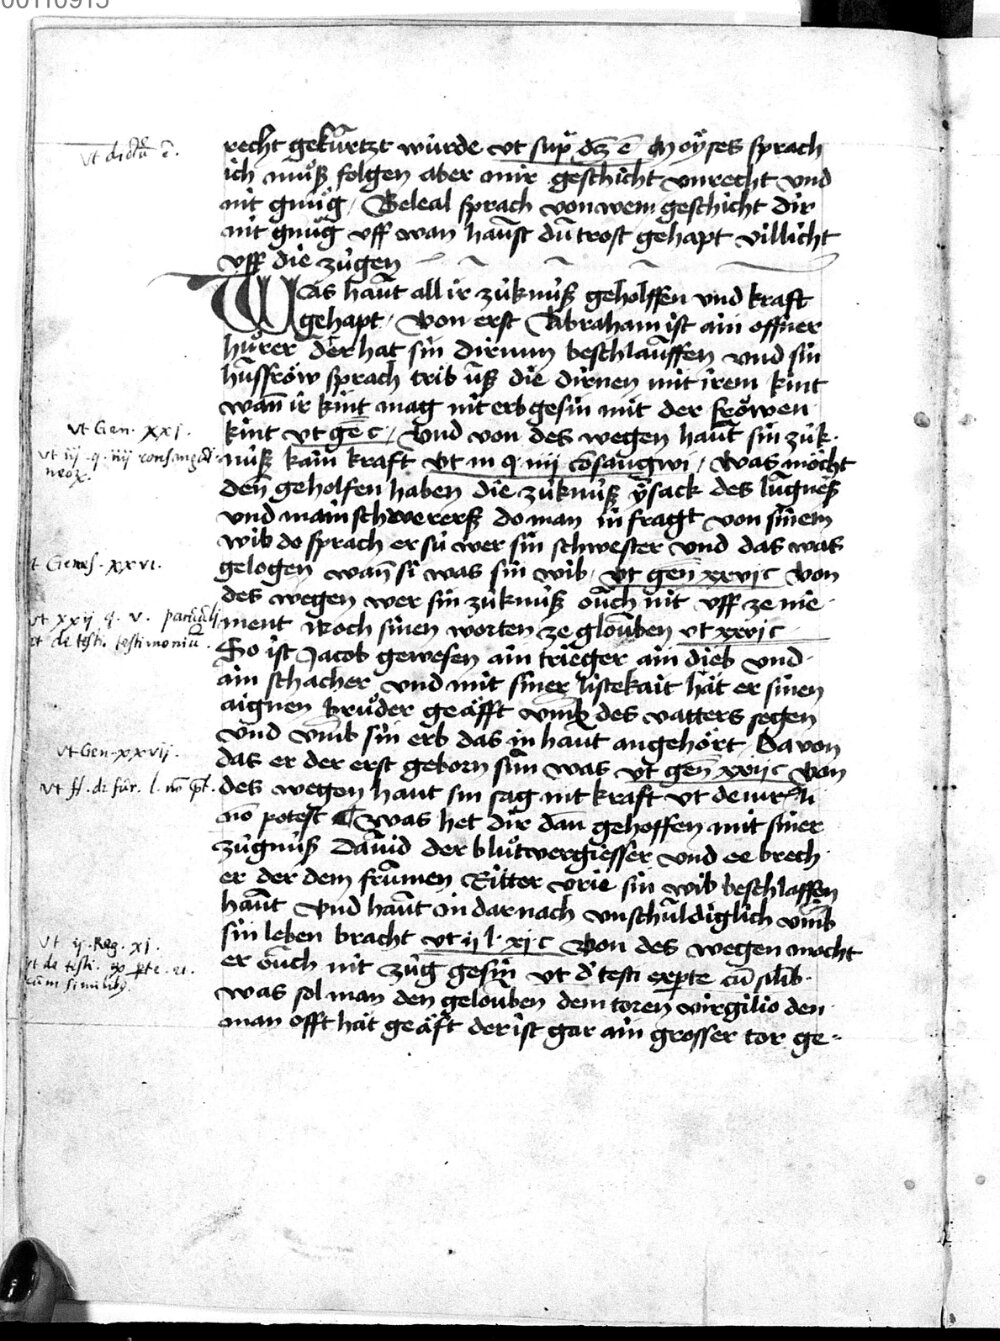 00110915
recht gekürtzt würde vt sup̄ dc̄ ē Moÿses sprach
vt dictū ē.
ich muͦß folgen aber mir geschicht vnrecht vnd
nit gnuͦg / Beleal sprach von wem geschicht dir
nit gnuͦg vff wan haust du trost gehapt villicht
vff die zügen
Was haut all ir züknüß geholffen vnd kraft
gehapt / Von erst Abraham ist ain offner
huͦrer der hat sin dirnum beschlauffen vnd sin
hussfröw sprach trib uß die dirnen mit irem kint
wan̄ ir kint mag nit erb gesin mit der fröwen
kint vt gēc / Vnd von des wegen haut sin zük-
vt Gen. xxi.
nüß kain kraft vt in q iiii cōsangwi / Was möcht
vt iij. q. iiij consangui
neox.
den̄ geholfen haben die züknüß ÿsack des lugners
vnd mainschwererß do man in fragt von sinem
wib do sprach er sü wer sin schwester vnd das was
gelogen wan̄ si was sin wib / vt gen̄ xxvj c Von
vt Genes. xxvi.
des wegen wer sin züknüß ouch nit vff ze nie-
ment Noch sinen worten ze glouben vt xxvj c
vt xxij q. v.
vt de testi. testimoniū.
So ist Jacob gewesen ain trieger ain dieb vnd
ain schacher vnd mit siner listekait hät er sinen
aignen bruͦder geäfft vmb des vatters segen
vnd vmb sin erb das in haut angehört / Da von
das er der erst geborn sun was vt gen̄ xxvij c Von
vt Gen. xxvij.
des wegen haut sin sag nit kraft vt de iur li
vt ff. de fur. l. nō pt.
nō potest Was het dir dan̄ gehoffen mit siner
zügnüß Dauid der bluͦtvergiesser vnd ee brech
er der dem frumen Ritter vrie sin wib beschlaffen
haut vnd haut in dar nach vnschuldiglich vmb
sin leben bracht vt ij l. xj c Von des wegen möcht
vt ij. Reg. xi.
er ouch nit züg gesin vt d' testi exp̄te cū silib.
vt de testi. ex p̄te. et.
cum similibꝫ
was sol man den gelouben dem toren virgilio den
man offt hät geäft der ist gar ain grosser tor ge-